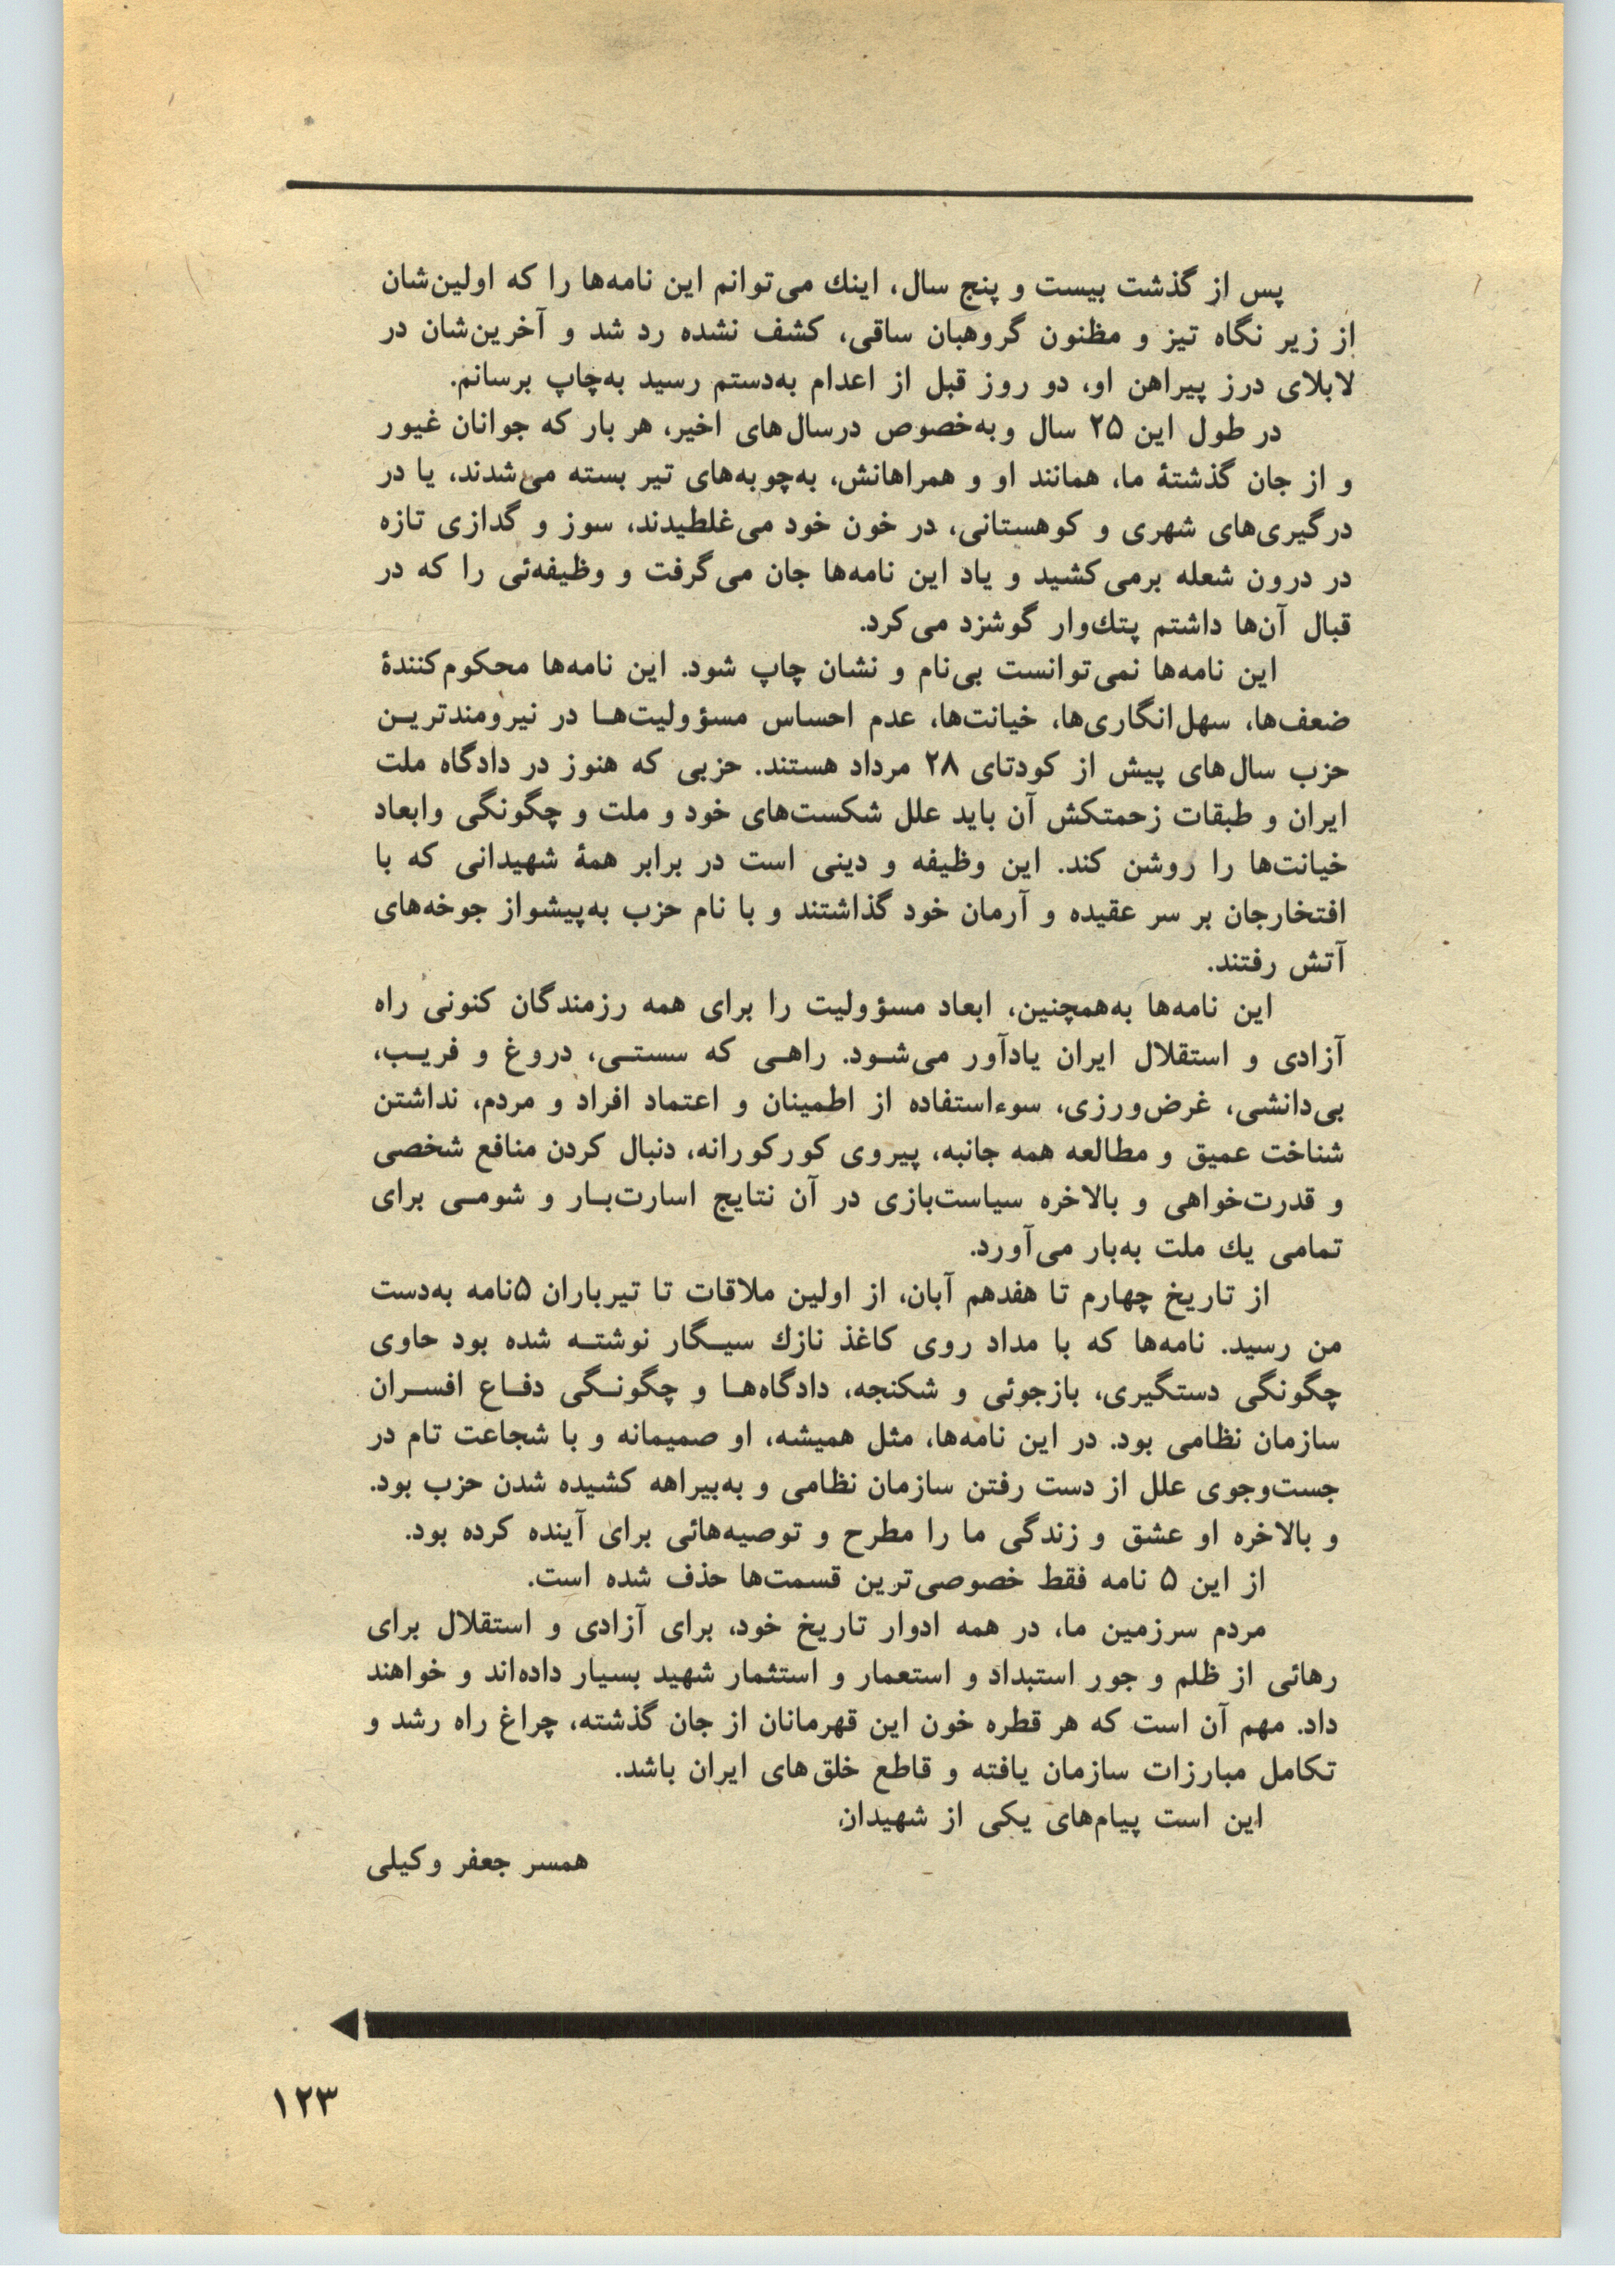 پس از گذشت بیست و پنج سال، اینك می‌توانم این نامه‌ها را که اولین‌شان
از زیر نگاه تیز و مظنون گروهبان ساقی، کشف نشده رد شد و آخرین‌شان در
لابلای درز پیراهن او، دو روز قبل از اعدام به‌دستم رسید به‌چاپ برسانم.
در طول این ۲۵ سال وبه‌خصوص درسال‌های اخیر، هر بار که جوانان غیور
و از جان گذشتهٔ ما، همانند او و همراهانش، به‌چوبه‌های تیر بسته می‌شدند، یا در
درگیری‌های شهری و کوهستانی، در خون خود می‌غلطیدند، سوز و گدازی تازه
در درون شعله برمی‌کشید و یاد این نامه‌ها جان می‌گرفت و وظیفه‌ئی را که در
قبال آن‌ها داشتم پتك‌وار گوشزد می‌کرد.
این نامه‌ها نمی‌توانست بی‌نام و نشان چاپ شود. این نامه‌ها محکوم‌کنندهٔ
ضعف‌ها، سهل‌انگاری‌ها، خیانت‌ها، عدم احساس مسؤولیت‌هـا در نیرومندتریـن
حزب سال‌های پیش از کودتای ۲۸ مرداد هستند. حزبی که هنوز در دادگاه ملت
ایران و طبقات زحمتکش آن باید علل شکست‌های خود و ملت و چگونگی وابعاد
خیانت‌ها را روشن کند. این وظیفه و دینی است در برابر همهٔ شهیدانی که با
افتخارجان بر سر عقیده و آرمان خود گذاشتند و با نام حزب به‌پیشواز جوخه‌های
آتش رفتند.
این نامه‌ها به‌همچنین، ابعاد مسؤولیت را برای همه رزمندگان کنونی راه
آزادی و استقلال ایران یادآور می‌شـود. راهـی که سستـی، دروغ و فریـب،
بی‌دانشی، غرض‌ورزی، سوءاستفاده از اطمینان و اعتماد افراد و مردم، نداشتن
شناخت عمیق و مطالعه همه جانبه، پیروی کورکورانه، دنبال کردن منافع شخصی
و قدرت‌خواهی و بالاخره سیاست‌بازی در آن نتایج اسارت‌بـار و شومـی برای
تمامی یك ملت به‌بار می‌آورد.
از تاریخ چهارم تا هفدهم آبان، از اولین ملاقات تا تیرباران ۵نامه به‌دست
من رسید. نامه‌ها که با مداد روی کاغذ نازك سیـگار نوشتـه شده بود حاوی
چگونگی دستگیری، بازجوئی و شکنجه، دادگاه‌هـا و چگونـگی دفـاع افسـران
سازمان نظامی بود. در این نامه‌ها، مثل همیشه، او صمیمانه و با شجاعت تام در
جست‌وجوی علل از دست رفتن سازمان نظامی و به‌بیراهه کشیده شدن حزب بود.
و بالاخره او عشق و زندگی ما را مطرح و توصیه‌هائی برای آینده کرده بود.
از این ۵ نامه فقط خصوصی‌ترین قسمت‌ها حذف شده است.
مردم سرزمین ما، در همه ادوار تاریخ خود، برای آزادی و استقلال برای
رهائی از ظلم و جور استبداد و استعمار و استثمار شهید بسیار داده‌اند و خواهند
داد. مهم آن است که هر قطره خون این قهرمانان از جان گذشته، چراغ راه رشد و
تکامل مبارزات سازمان یافته و قاطع خلق‌های ایران باشد.
این است پیام‌های یکی از شهیدان
همسر جعفر وکیلی
۱۲۳